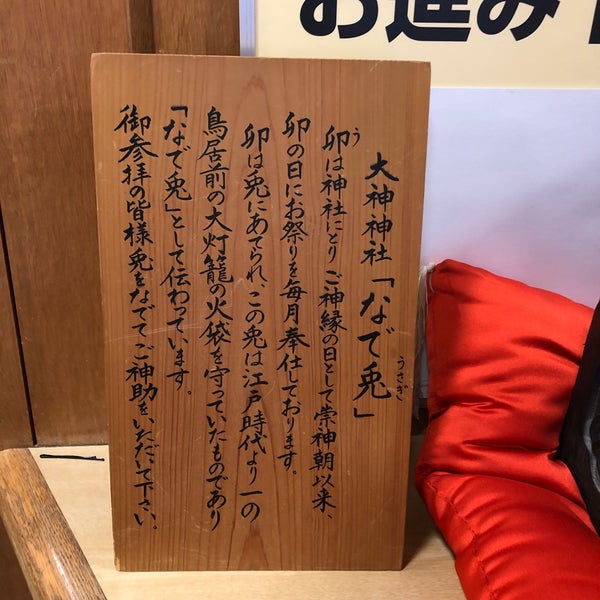 お進み
大神神社「なで兎」
うさぎ
う
卯は神社にとりご神縁の日として崇神朝以来、
卯の日にお祭りを毎月奉仕しております。
卯は兎にあてられ、この兎は江戸時代より一の
鳥居前の大灯籠の火袋を守っていたものであり
「なで兎」として伝わっています。
御参拝の皆様兎をなでてご神助をいただいて下さい。